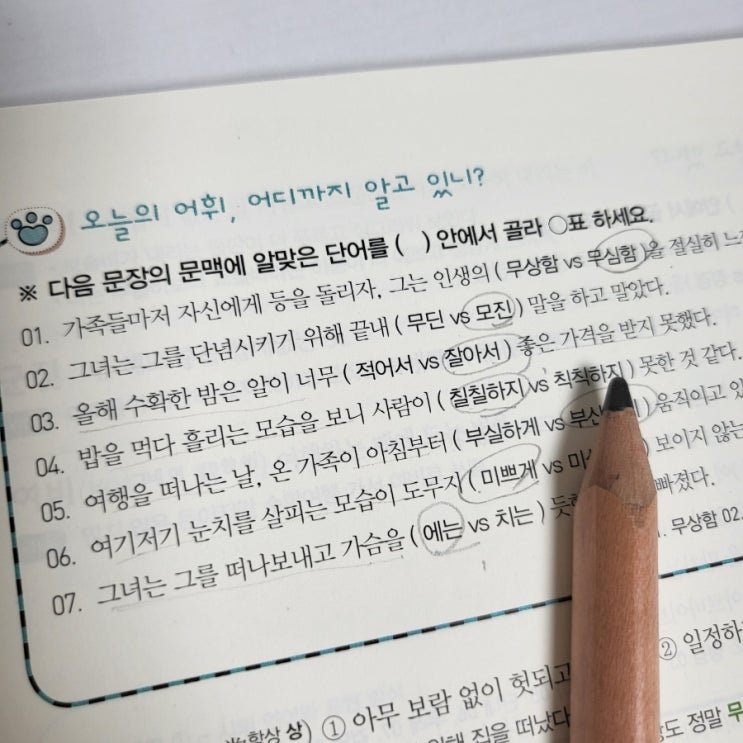 오늘의 어휘, 어디까지 알고 있니?
※ 다음 문장의 문맥에 알맞은 단어를 ( ) 안에서 골라 ○표 하세요.
01. 가족들마저 자신에게 등을 돌리자, 그는 인생의 ( 무상함 vs 무심함 )을 절실히
02. 그녀는 그를 단념시키기 위해 끝내 ( 무딘 vs 모진 ) 말을 하고 말았다.
03. 올해 수확한 밤은 알이 너무 ( 적어서 vs 잘아서 ) 좋은 가격을 받지 못했다.
04. 밥을 먹다 흘리는 모습을 보니 사람이 ( 칠칠하지 vs 칙칙하지 ) 못한 것 같다.
05. 여행을 떠나는 날, 온 가족이 아침부터 ( 부실하게 vs ) 움직이고
06. 여기저기 눈치를 살피는 모습이 도무지 ( 미쁘게 vs ) 보이지 않는
07. 그녀는 그를 떠나보내고 가슴을 ( 에는 vs 치는 )
무상함 02.
① 아무 보람 없이 헛되고
② 일정하
집을 떠났다
정말